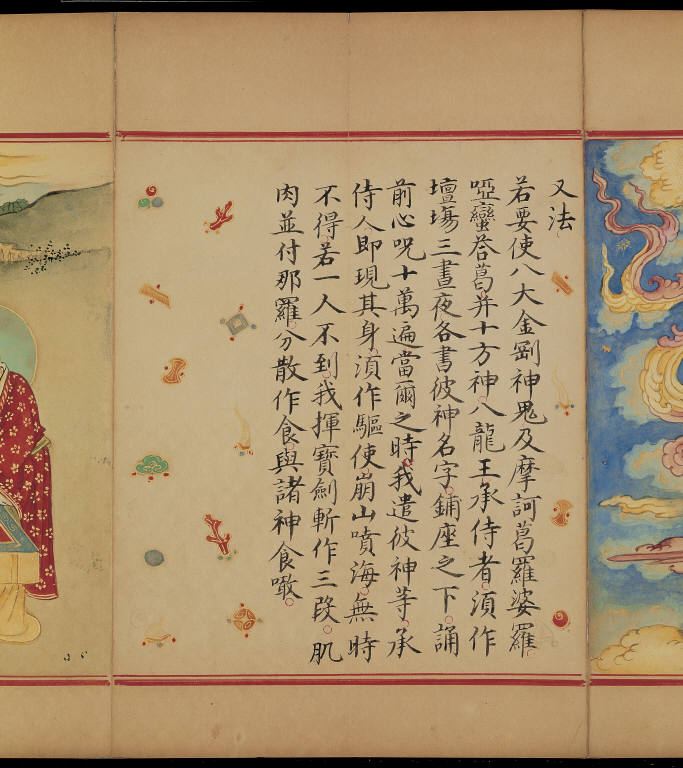 又法
若要使八大金剛神鬼及摩訶葛羅婆羅
啞蠻荅葛并十方神八龍王承侍者湏作
壇場三晝夜各書彼神名字鋪座之下誦
前心呪十萬遍當爾之時我遣彼神等承
侍人即現其身湏作驅使崩山噴海無時
不得若一人不到我揮寶劍斬作三段肌
肉並付那羅分散作食與諸神食噉